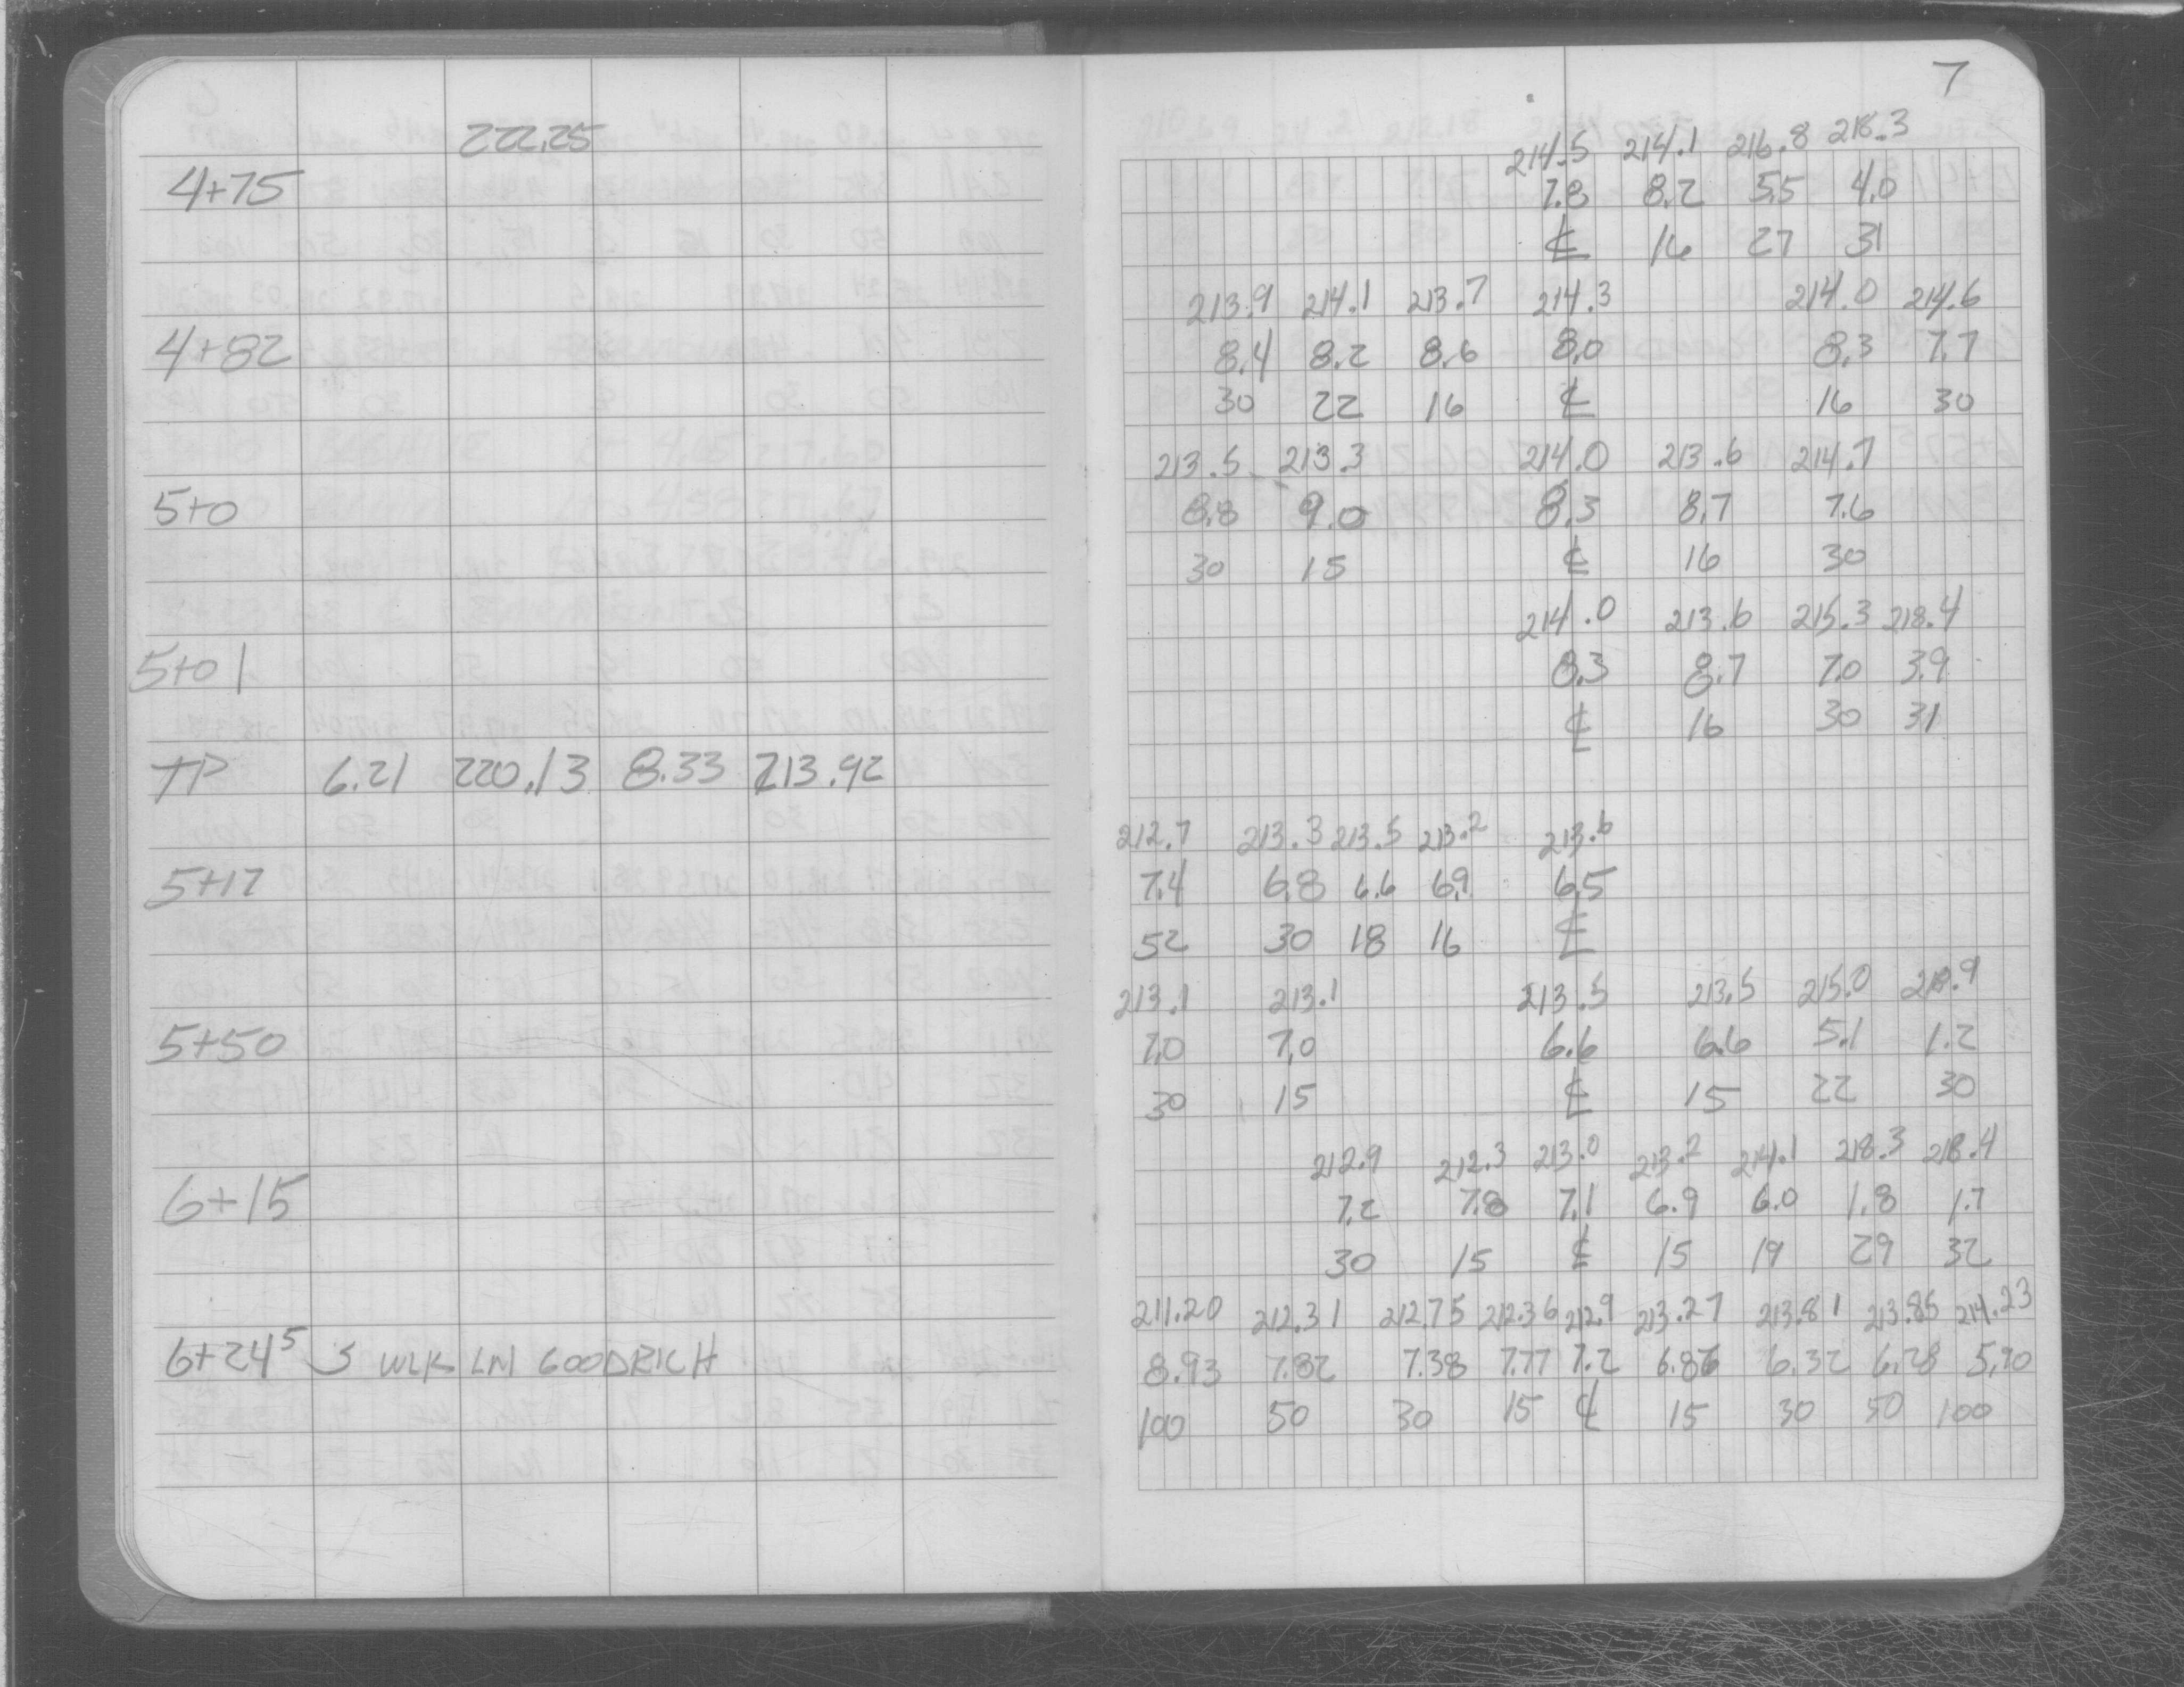 7
222.25
214.5 214.1 216.8 218.3
4+75 7.8 8.2 5.5 4.0
℄ 16 27 31
213.9 214.1 213.7 214.3 214.0 214.6
4+82 8.4 8.2 8.6 8.0 8.3 7.7
30 22 16 ℄ 16 30
213.5 213.3 214.0 213.6 214.7
5+0 8.8 9.0 8.3 8.7 7.6
30 15 ℄ 16 30
214.0 213.6 215.3 218.4
5+01 8.3 8.7 7.0 3.9
℄ 16 30 31
TP 6.21 220.13 8.33 213.92
212.7 213.3 213.5 213.2 213.6
5+17 7.4 6.8 6.6 6.9 6.5
52 30 18 16 ℄
213.1 213.1 213.5 213.5 215.0 218.9
5+50 7.0 7.0 6.6 6.6 5.1 1.2
30 15 ℄ 15 22 30
212.9 212.3 213.0 213.2 214.1 218.3 218.4
6+15 7.2 7.8 7.1 6.9 6.0 1.8 1.7
30 15 ℄ 15 19 29 32
211.20 212.31 212.75 212.36 212.9 213.27 213.81 213.85 214.23
6+24⁵ S WLK LN GOODRICH 8.93 7.82 7.38 7.77 7.2 6.86 6.32 6.28 5.90
100 50 30 15 ℄ 15 30 50 100